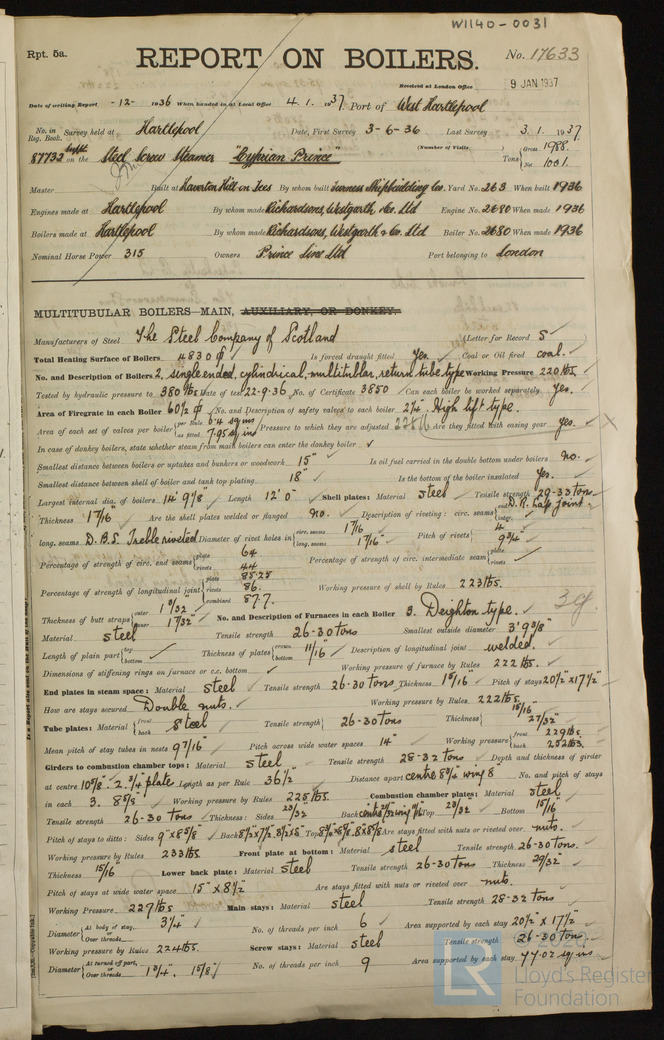 W1140-0031
Rpt. 5a.
REPORT ON BOILERS.
No. 17633
Received at London Office
9 JAN 1937
Date of writing Report -12- 1936 When handed in at Local Office 4. 1. 1937. Port of West Hartlepool
No. in Reg. Book. Survey held at Hartlepool Date, First Survey 3-6-36 Last Survey 3. 1. 1937.
(Number of Visits
87733 on the Steel Screw Steamer "Cyprian Prince" Tons Gross 1988. Net 1001.
Master Built at Haverton Hill on Tees By whom built Furness Shipbuilding Co. Yard No. 263 When built 1936
Engines made at Hartlepool By whom made Richardsons, Westgarth & Co. Ltd Engine No. 2680 When made 1936
Boilers made at Hartlepool By whom made Richardsons, Westgarth & Co. Ltd Boiler No. 2680 When made 1936
Nominal Horse Power 315 Owners Prince Line Ltd Port belonging to London
MULTITUBULAR BOILERS—MAIN, AUXILIARY, OR DONKEY.
Manufacturers of Steel The Steel Company of Scotland (Letter for Record S
Total Heating Surface of Boilers 4830 Is forced draught fitted Yes. Coal or Oil fired coal.
No. and Description of Boilers 2, single ended, cylindrical, multitubular, return tube type Working Pressure 220 lbs.
Tested by hydraulic pressure to 380 lbs Date of test 22-9-36 No. of Certificate 3850 Can each boiler be worked separately Yes.
Area of Firegrate in each Boiler 60½ No. and Description of safety valves to each boiler 2¼" High lift type.
Area of each set of valves per boiler per Rule 6.4 sq ins as fitted 7.95 sq ins Pressure to which they are adjusted Are they fitted with easing gear Yes.
In case of donkey boilers, state whether steam from main boilers can enter the donkey boiler ✓
Smallest distance between boilers or uptakes and bunkers or woodwork 15" Is oil fuel carried in the double bottom under boilers no.
Smallest distance between shell of boiler and tank top plating 18" Is the bottom of the boiler insulated Yes.
Largest internal dia. of boilers 14' 9⅛" Length 12' 0" Shell plates: Material steel Tensile strength 29-33 tons
Thickness 1 7/16" Are the shell plates welded or flanged no. Description of riveting: circ. seams end D.R. Lap joint inter.
long. seams D.B.S. Treble riveted Diameter of rivet holes in circ. seams 1 7/16" long. seams 1 7/16" Pitch of rivets 4" 9¾"
Percentage of strength of circ. end seams plate 64 rivets 44 Percentage of strength of circ. intermediate seam plate rivets
Percentage of strength of longitudinal joint plate 85.25 rivets 86. combined 87.7. Working pressure of shell by Rules 223 lbs.
Thickness of butt straps outer 1 3/32" inner 1 7/32" No. and Description of Furnaces in each Boiler 3. Deighton type.
Material steel Tensile strength 26-30 tons Smallest outside diameter 3' 9⅜"
Length of plain part top bottom Thickness of plates crown bottom 11/16" Description of longitudinal joint welded.
Dimensions of stiffening rings on furnace or c.c. bottom Working pressure of furnace by Rules 222 lbs.
End plates in steam space: Material steel Tensile strength 26-30 tons Thickness 1 5/16" Pitch of stays 20½" x 17½"
How are stays secured Double nuts. Working pressure by Rules 222 lbs
Tube plates: Material front back steel Tensile strength 26-30 tons Thickness 15/16" 27/32"
Mean pitch of stay tubes in nests 9 7/16" Pitch across wide water spaces 14" Working pressure front 229 lbs back 252 lbs.
Girders to combustion chamber tops: Material steel Tensile strength 28-32 tons Depth and thickness of girder
at centre 10⅝". 2. ¾ plate Length as per Rule 36½" Distance apart centre 8¾" wing 8 No. and pitch of stays
in each 3. 8⅝" Working pressure by Rules 228 lbs. Combustion chamber plates: Material steel
Tensile strength 26-30 tons Thickness: Sides 23/32" Back Top 23/32" Bottom 15/16"
Pitch of stays to ditto: Sides 9" x 8⅝" Back Top Are stays fitted with nuts or riveted over nuts.
Working pressure by Rules 233 lbs Front plate at bottom: Material steel Tensile strength 26-30 tons.
Thickness 15/16" Lower back plate: Material steel Tensile strength 26-30 tons Thickness 29/32"
Pitch of stays at wide water space 15" x 8½" Are stays fitted with nuts or riveted over nuts.
Working Pressure 227 lbs Main stays: Material steel Tensile strength 28-32 tons
Diameter At body of stay, or Over threads 3¼" No. of threads per inch 6 Area supported by each stay 20½" x 17½"
Working pressure by Rules 224 lbs. Screw stays: Material steel Tensile strength 26-30 tons.
Diameter At turned off part, or Over threads 1¾", 1⅝" No. of threads per inch 9 Area supported by each stay 77.02 sq ins
© 2020
LR
Lloyd's Register
Foundation